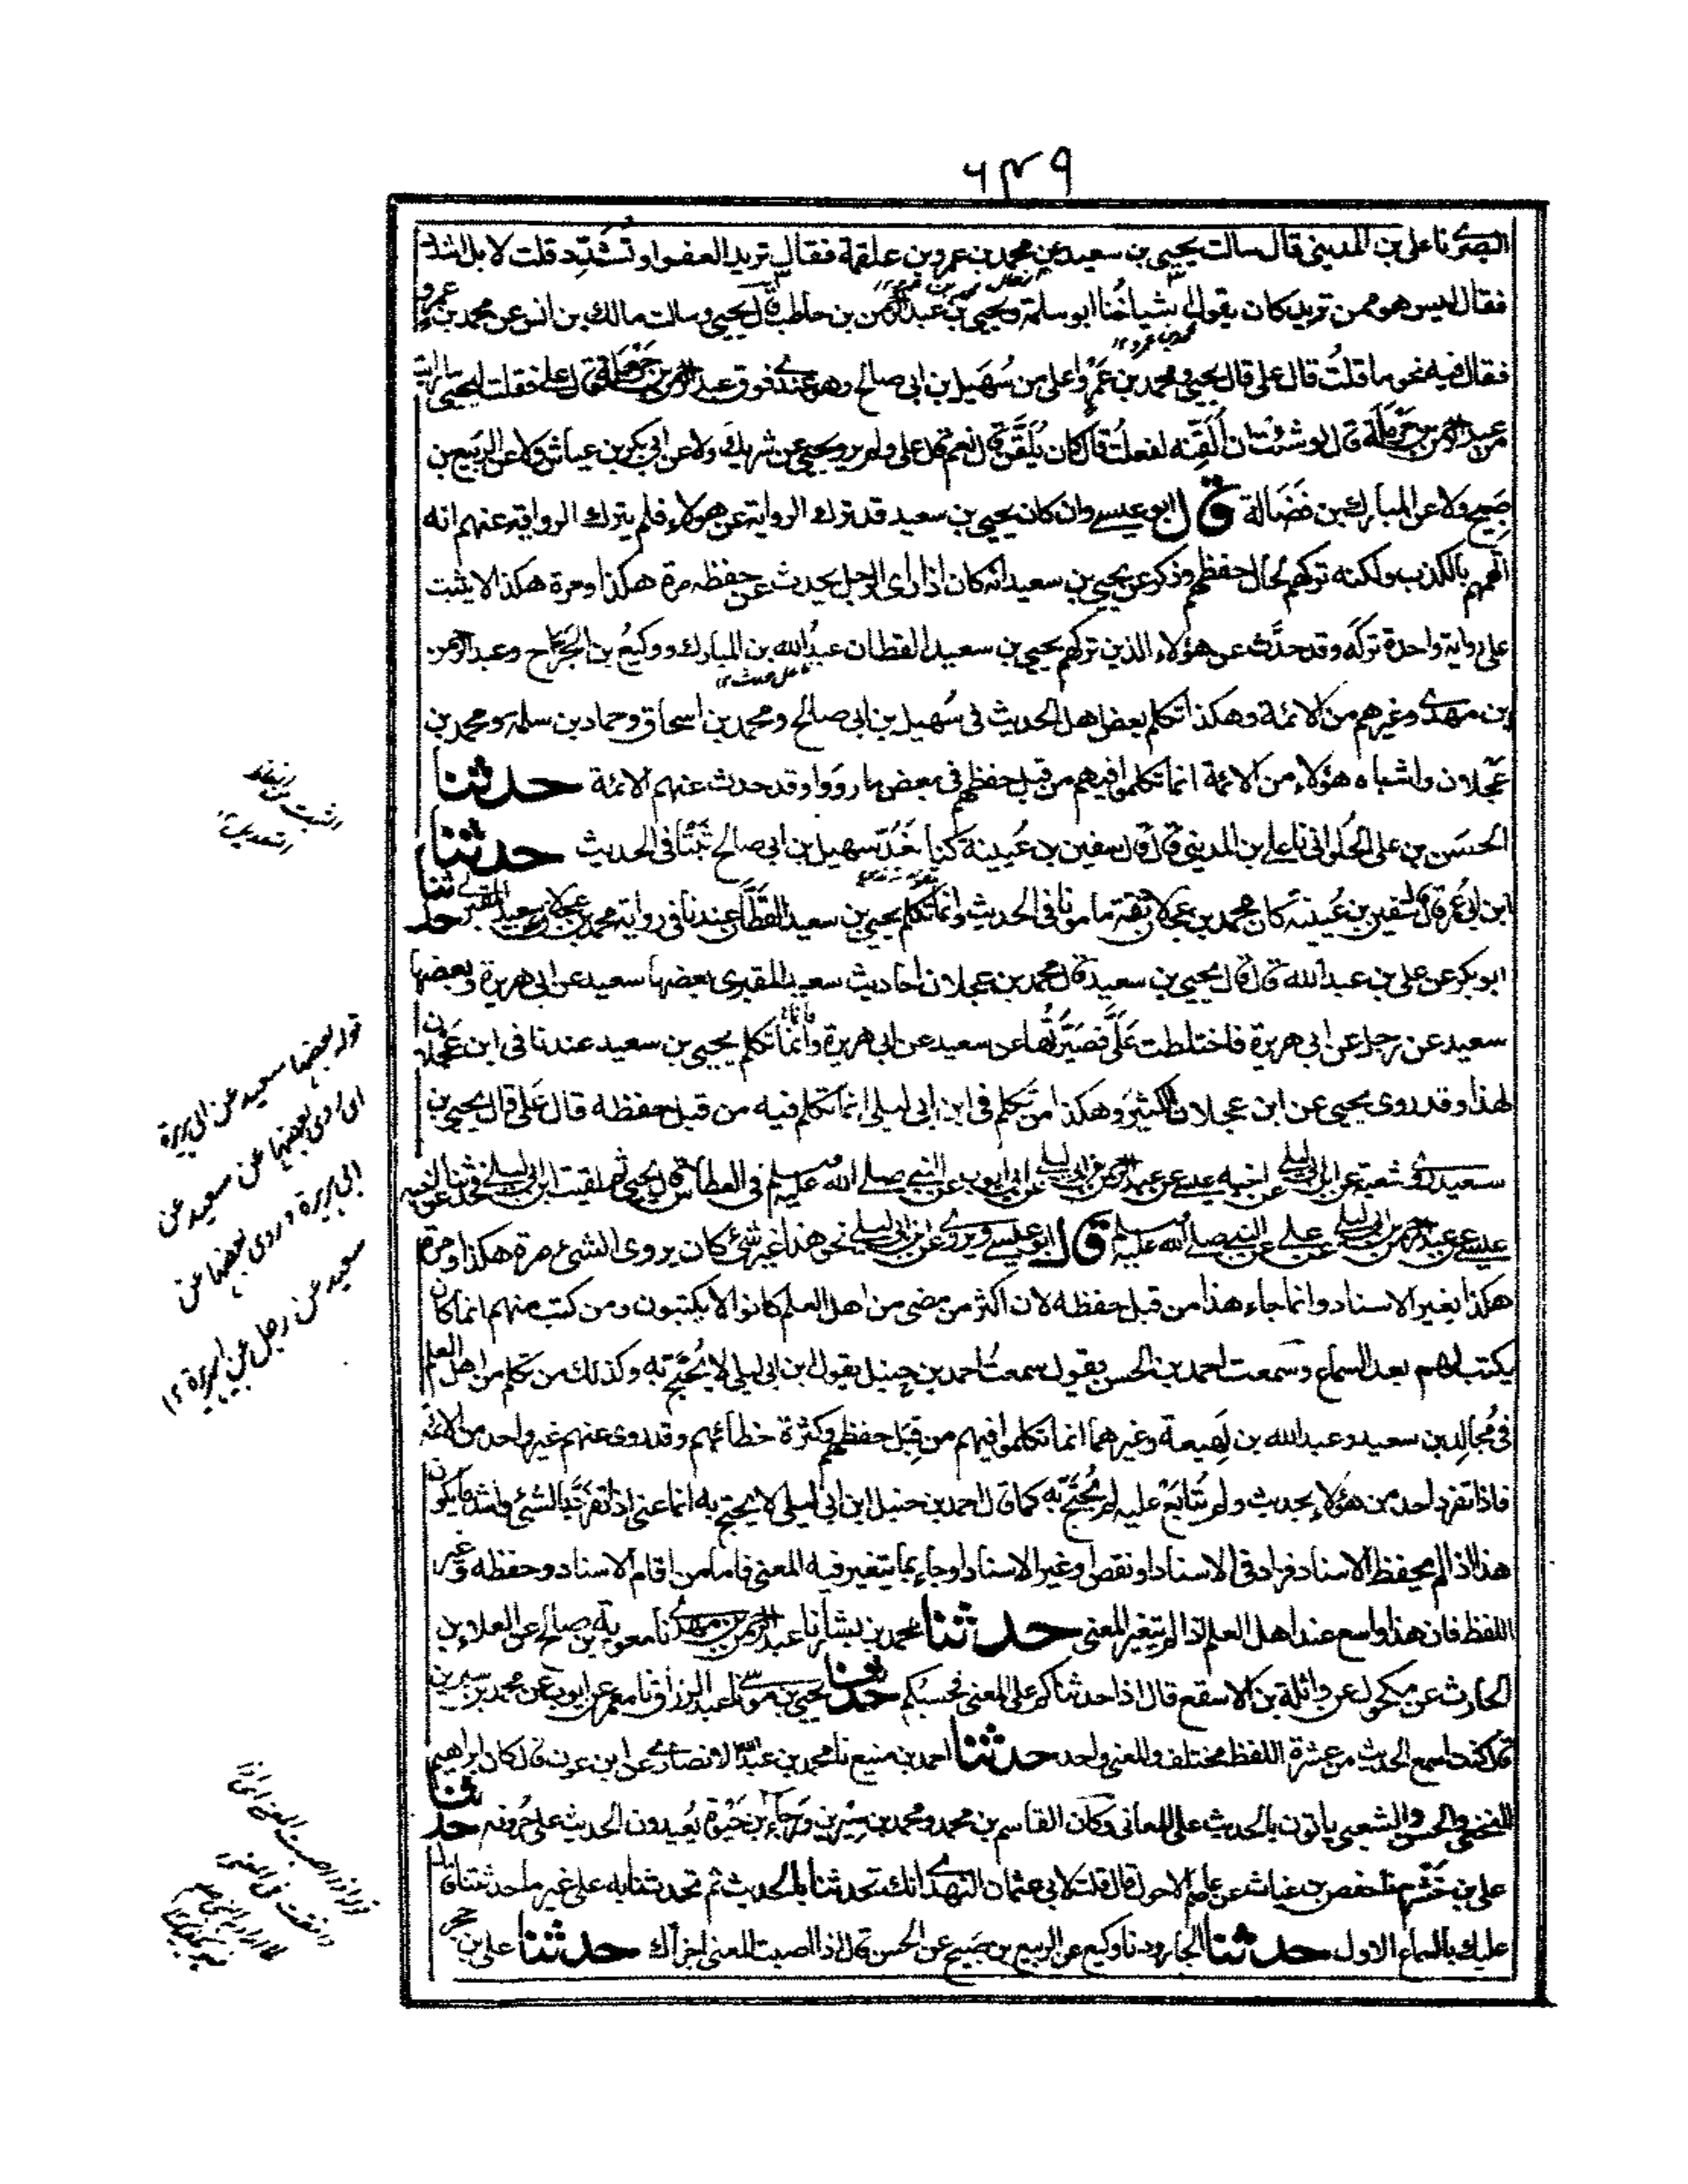 ٦٤٩
البصری نا علی بن المدینی قال سالت یحیی بن سعید عن محمد بن عمرو بن علقمة فقال ترید العفو او تشدّد قلت لا بل اشدد
فقال لیس هو ممن ترید کان یقول اشیاخنا ابو سلمة ویحیی بن عبد الرحمن بن حاطب قال یحیی وسالت مالک بن انس عن محمد بن عمرو
فقال فیه نحو ما قلتُ قال علی قال یحیی ومحمد بن عَمْرو اعلی من سُهَیل بن ابی صالح وهو عندی فوق عبد الرحمن بن حَرْمَلة قال علی فقلت لیحیی ما رایت
من عبد الرحمن بن حَرْمَلة قال لو شئتُ ان اُلَقِّنه لفعلتُ قال کان یُلَقَّن قال نعم قال علی ولم یرو یحیی عن شریک ولا عن ابی بکر بن عیاش ولا عن الربیع بن
صَبیح ولا عن المبارک بن فَضَالة قال ابو عیسے وان کان یحیی بن سعید قد ترک الروایة عن هولاء فلم یترک الروایة عنهم انه
اتهمهم بالکذب ولکنه ترکهم لحال حفظهم وذکر عن یحیی بن سعید انه کان اذا رای الرجل یحدث عن حفظه مرة هکذا ومرة هکذا لا یثبت
علی روایة واحدة ترکه وقد حدَّث عن هؤلاء الذین ترکهم یحیی بن سعید القطان عبدُ الله بن المبارک ووکیعُ بن الجَرَّاح وعبد الرحمن
بن مهدی وغیرهم من الائمة وهکذا تکلم بعض اهل الحدیث فی سُهیل بن ابی صالح ومحمد بن اسحاق وحماد بن سلمة ومحمد بن
عَجْلان واشباه هؤلاء من الائمة انما تکلموا فیهم من قبل حفظهم فی بعض ما رووا وقد حدث عنهم الائمة حدثنا
الحسَن بن علی الحُلوانی نا علی بن المدینی قال قال سفین بن عُیینة کنا نَعُدّ سهیل بن ابی صالح ثَبْتًا فی الحدیث حدثنا
ابن ابی عمر قال قال سفین بن عُیینة کان محمد بن عجلان ثقة مامونا فی الحدیث وانما تکلم یحیی بن سعید القطَّان عندنا فی روایة محمد بن عجلان عن سعید المقبری حدثنا
ابو بکر عن علی بن عبد الله قال قال یحیی بن سعید قال محمد بن عجلان احادیث سعید المقبری بعضها سعید عن ابی هریرة وبعضها
سعید عن رجل عن ابی هریرة فاختلطت عَلَیَّ فصَیَّرتُها عن سعید عن ابی هریرة فانما تکلم یحیی بن سعید عندنا فی ابن عَجْلان
لهذا وقد روی یحیی عن ابن عجلان الکثیر وهکذا من تکلم فی ابن ابی لیلی انما تکلم فیه من قبل حفظه قال عَلی قال یحیی بن
سعید روی شعبة عن ابن ابی لیلے عن اخیه عیسے عن عبد الرحمن بن ابی لیلے عن ابی ایوب عن النبی صلے الله علیه وسلم فی العطاس قال یحیی ثم لقیت ابن ابی لیلے فحدثنا عن اخیه
عیسے عن عبد الرحمن بن ابی لیلے عن علے عن النبی صلے الله علیه وسلم قال ابو عیسے ویروی عن ابن ابی لیلے نحو هذا غیر شئ کان یروی الشئ مرة هکذا ومرة
هکذا بغیر الاسناد وانما جاء هذا من قبل حفظه لان اکثر من مضی من اهل العلم کانوا لا یکتبون ومن کتب منهم انما کان
یکتب لهم بعد السماع وسمعت احمد بن الحسن یقول سمعتُ احمد بن حنبل یقول ابن ابی لیلی لا یُحْتَج به وکذلک من تکلم من اهل العلم
فی مُجالِد بن سعید وعبد الله بن لَهِیعة وغیرهما انما تکلموا فیهم من قِبَل حفظهم وکثرة خطائهم وقد روی عنهم غیر واحد من الائمة
فاذا تفرد احد من هؤلاء بحدیث ولم یُتابَعْ علیه لم یُحْتَجّ به کما قال احمد بن حنبل ابن ابی لیلی لا یحتج به انما عنی اذا تفرّد بالشئ واشد ما یکون
هذا اذا لم یحفظ الاسناد فزاد فی الاسناد او نقص او غیر الاسناد او جاء بما یتغیر فیه المعنی فاما من اقام الاسناد وحفظه وغیر
اللفظ فان هذا واسع عند اهل العلم اذا لم یتغیر المعنی حدثنا محمد بن بشار نا عبد الرحمن بن مهدی نا معویة بن صالح عن العلاء بن
الحارث عن مکحول عن واثلة بن الاسقع قال اذا حدثناکم علی المعنی فحسبُکم حدثنا یحیی بن موسی نا عبد الرزاق نا معمر عن ایوب عن محمد بن سیرین
قال کنت اسمع الحدیث من عشرة اللفظ مختلف والمعنی واحد حدثنا احمد بن منیع نا محمد بن عبد الله الانصاری عن ابن عون قال کان ابراهیم
النخعی والحسن والشعبی یاتون بالحدیث علی المعانی وکان القاسم بن محمد ومحمد بن سیرین ورجاء بن حَیْوة یُعیدون الحدیث علی حُروفه حدثنا
علی بن خَشْرم نا حفص بن غیاث عن عاصم الاحول قال قلت لابی عثمان النهدی انک تحدثنا بالحدیث ثم تحدثنا به علی غیر ما حدثتنا قال
علیک بالسماع الاول حدثنا الجارود نا وکیع عن الربیع بن صَبیح عن الحسن قال اذا اصبت المعنی اجزأک حدثنا علی بن حجر
قوله بعضها سعید عن ابی هریرة
ای روی بعضها عن سعید عن
ابی هریرة و روی بعضها عن
سعید عن رجل عن ابی هریرة ١٢